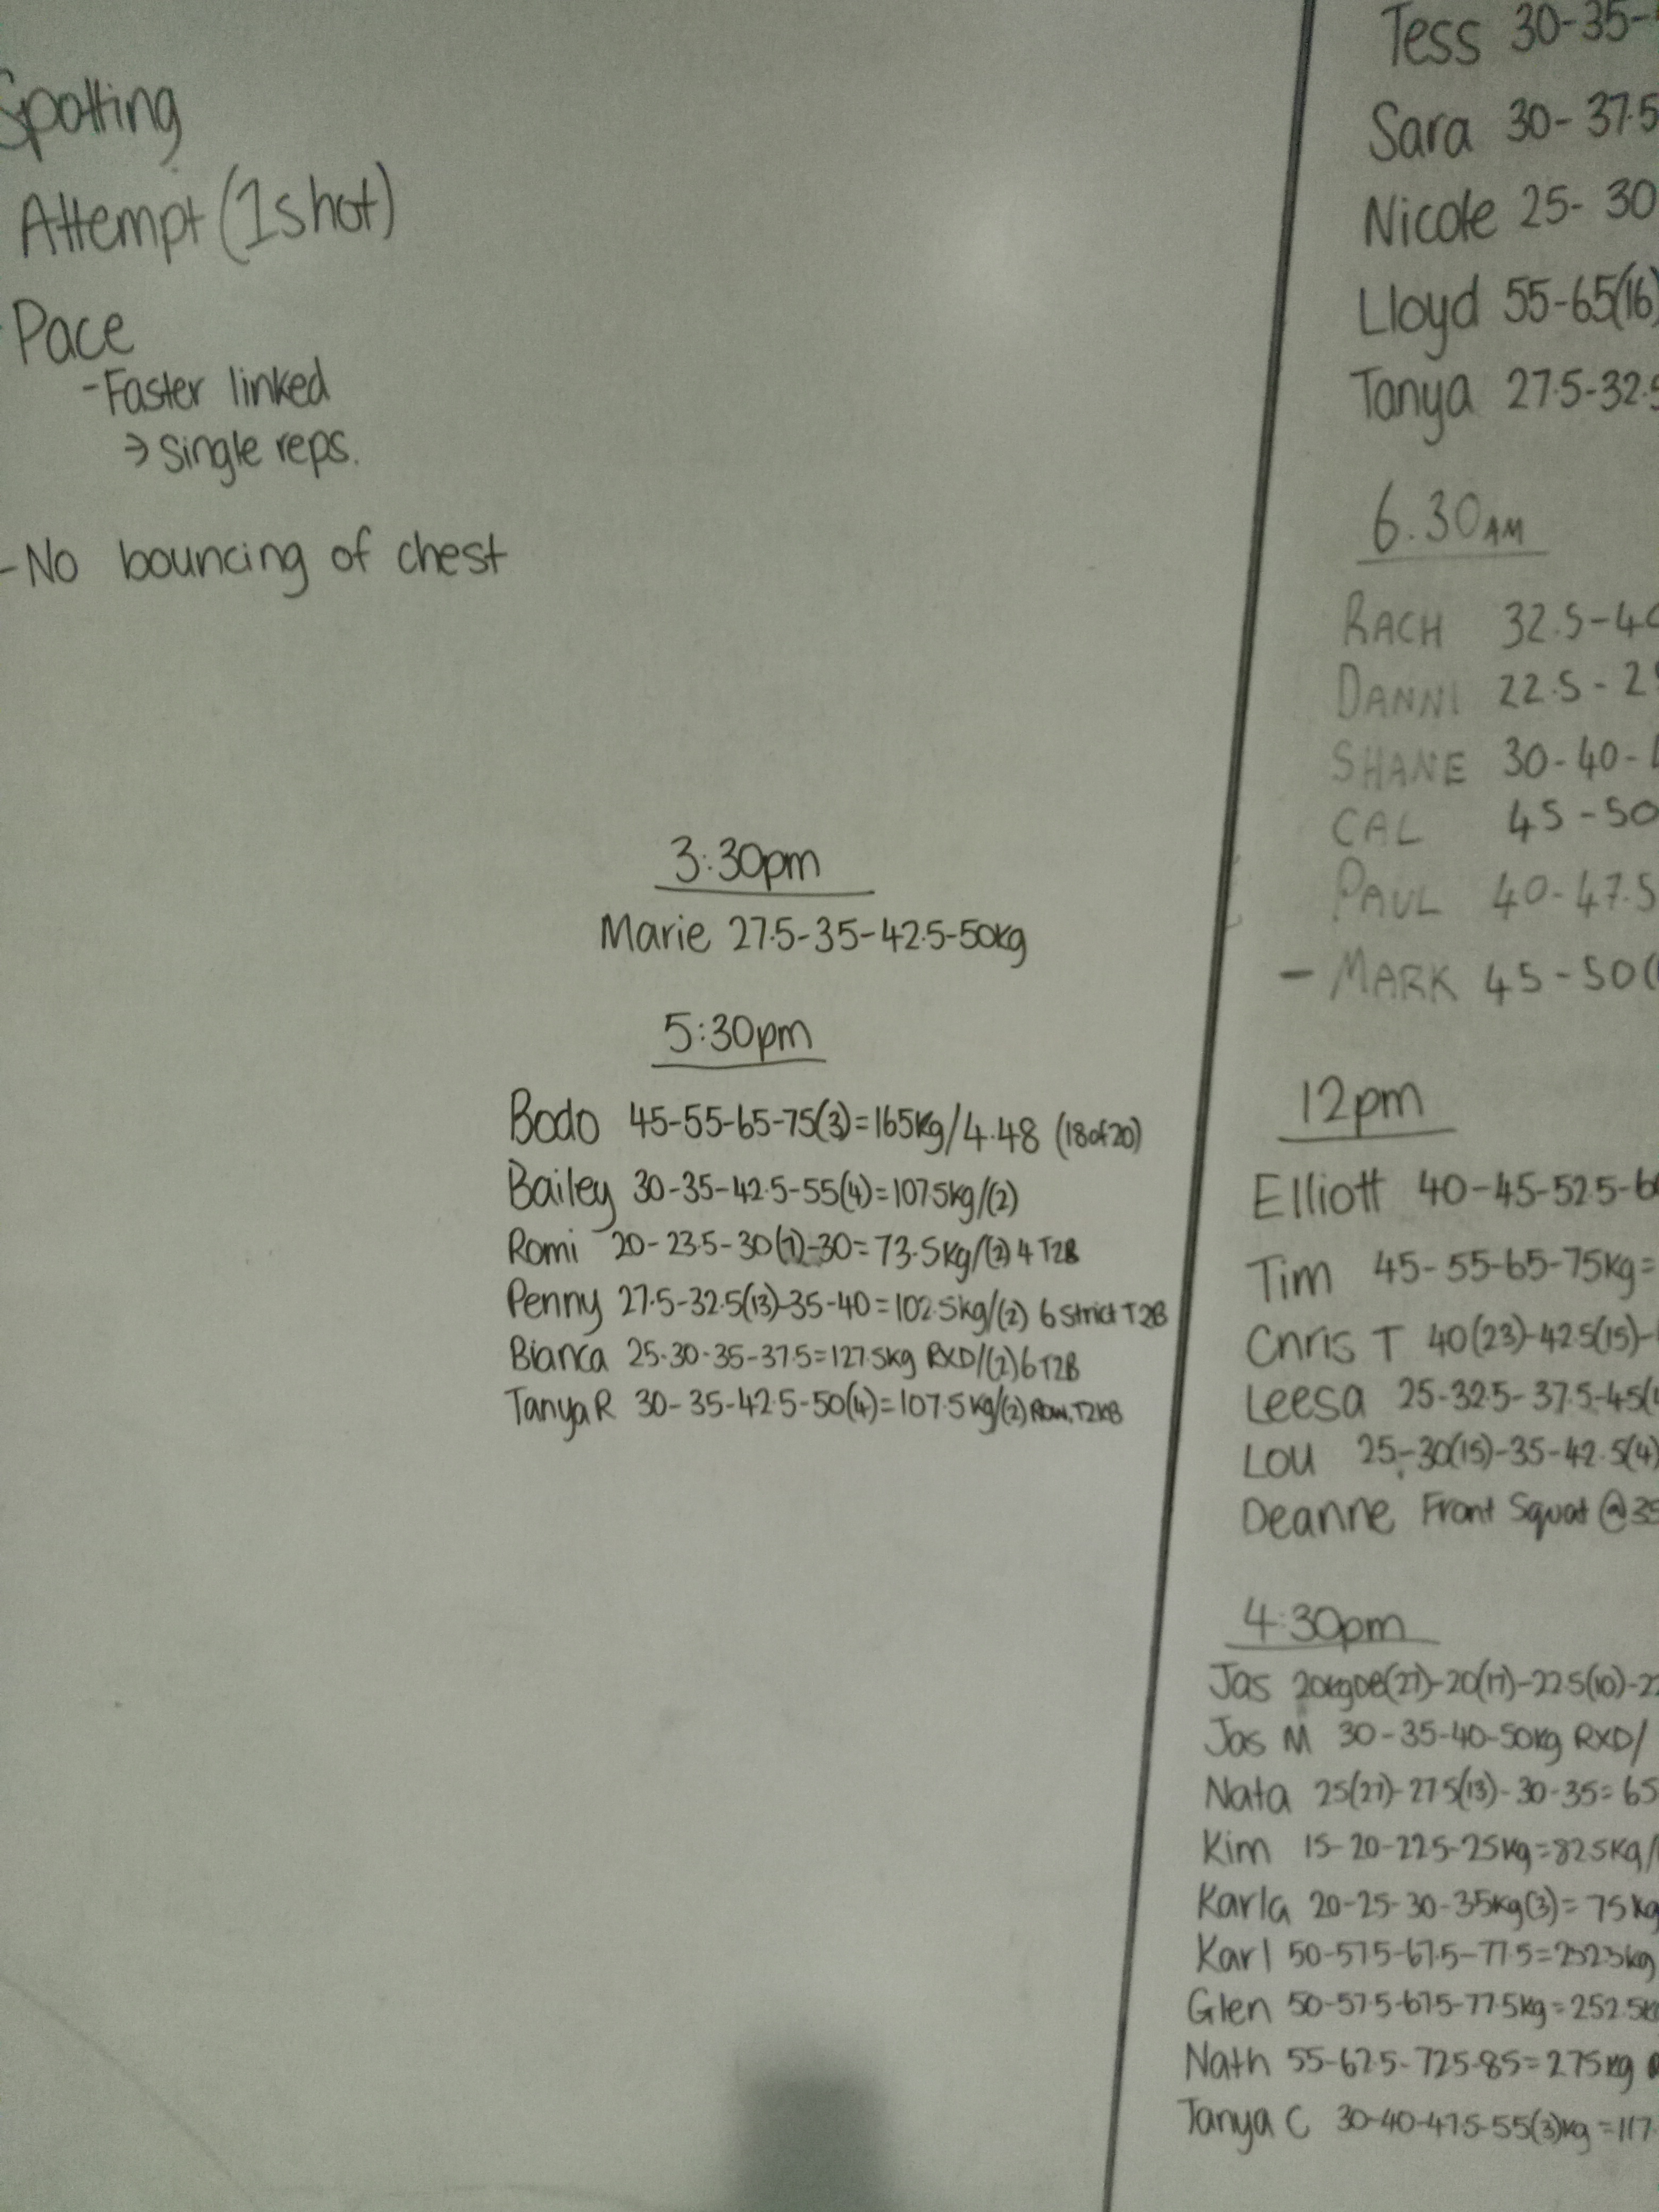 Spotting
Attempt (1 shot)
Pace
- Faster linked
→ Single reps.
- No bouncing of chest
3:30pm
Marie 27.5-35-42.5-50kg
5:30pm
Bodo 45-55-65-75(3)=165kg/4.48 (18of20)
Bailey 30-35-42.5-55(4)=107.5kg/(2)
Romi 20-23.5-30(7)-30=73.5kg/(2) 4 T2B
Penny 27.5-32.5(13)-35-40=102.5kg/(2) 6 Strict T2B
Bianca 25-30-35-37.5=127.5kg RXD/(2) 6 T2B
Tanya R 30-35-42.5-50(4)=107.5kg/(2) Row, T2KB
Tess 30-35-
Sara 30-37.5
Nicole 25-30
Lloyd 55-65(16)
Tanya 27.5-32.5
6.30AM
RACH 32.5-40
DANNI 22.5-
SHANE 30-40-
CAL 45-50
PAUL 40-47.5
- MARK 45-50(
12pm
Elliott 40-45-52.5-
Tim 45-55-65-75kg=
Chris T 40(23)-42.5(15)-
Leesa 25-32.5-37.5-45(
Lou 25-30(15)-35-42.5(4)
Deanne Front Squat @
4:30pm
Jas 20kgDB(27)-20(17)-22.5(10)-
Jas M 30-35-40-50kg RXD/
Nata 25(27)-27.5(13)-30-35=65
Kim 15-20-22.5-25kg=82.5kg/
Karla 20-25-30-35kg(3)=75kg
Karl 50-57.5-67.5-77.5=252.5kg
Glen 50-57.5-67.5-77.5kg=252.5k
Nath 55-62.5-72.5-85=275kg
Tanya C 30-40-47.5-55(3)kg=117.